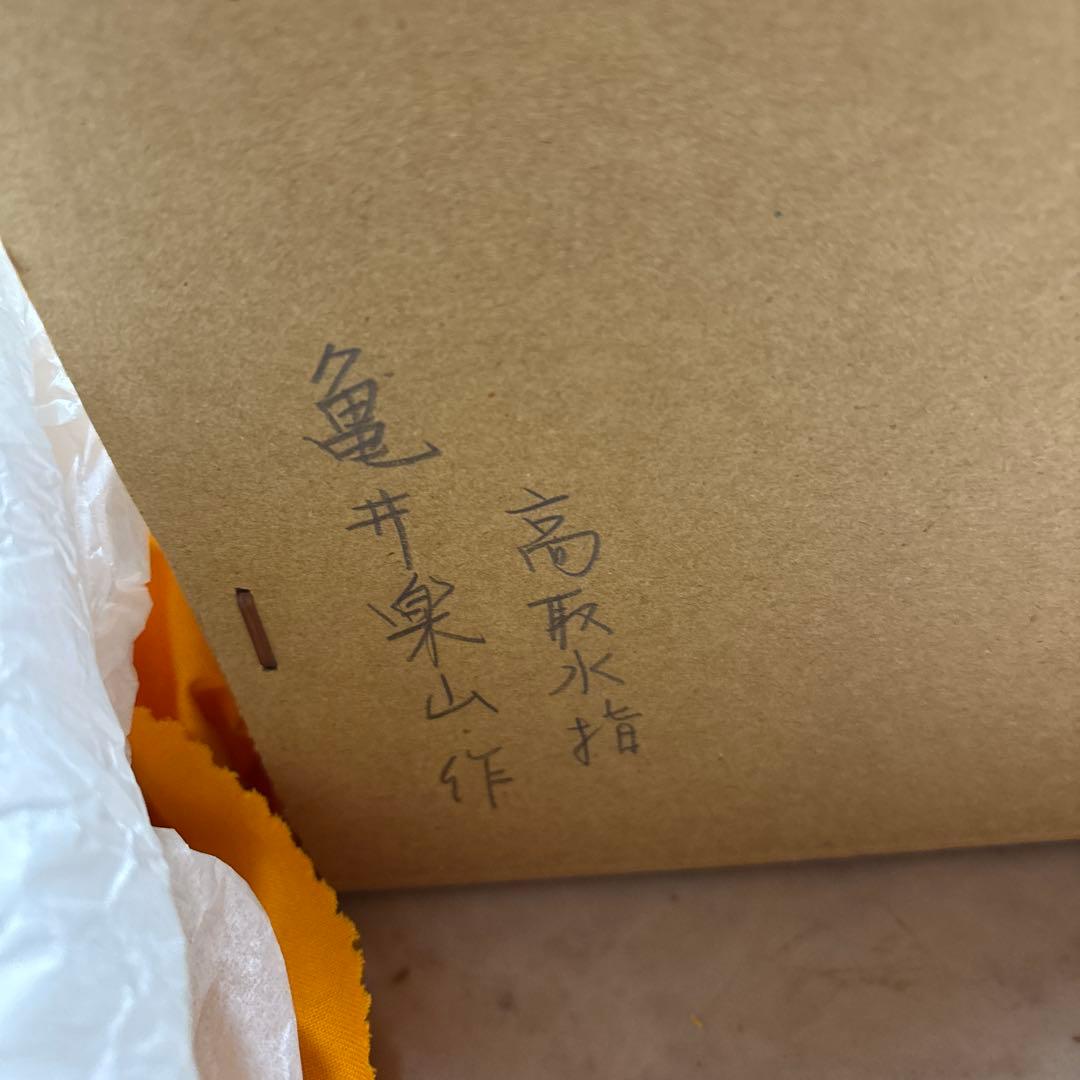 高取水指
亀井楽山作